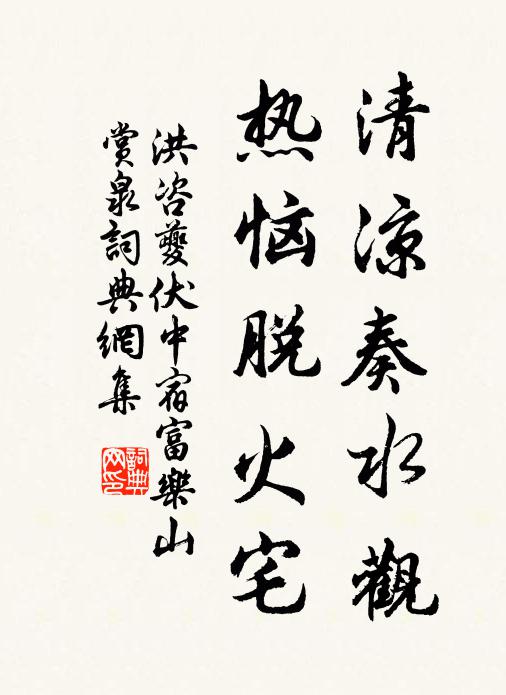 清凉奏水觀
热恼脱火宅
洪咨夔伏中宿富樂山
賞泉詞典網集
詞典网印